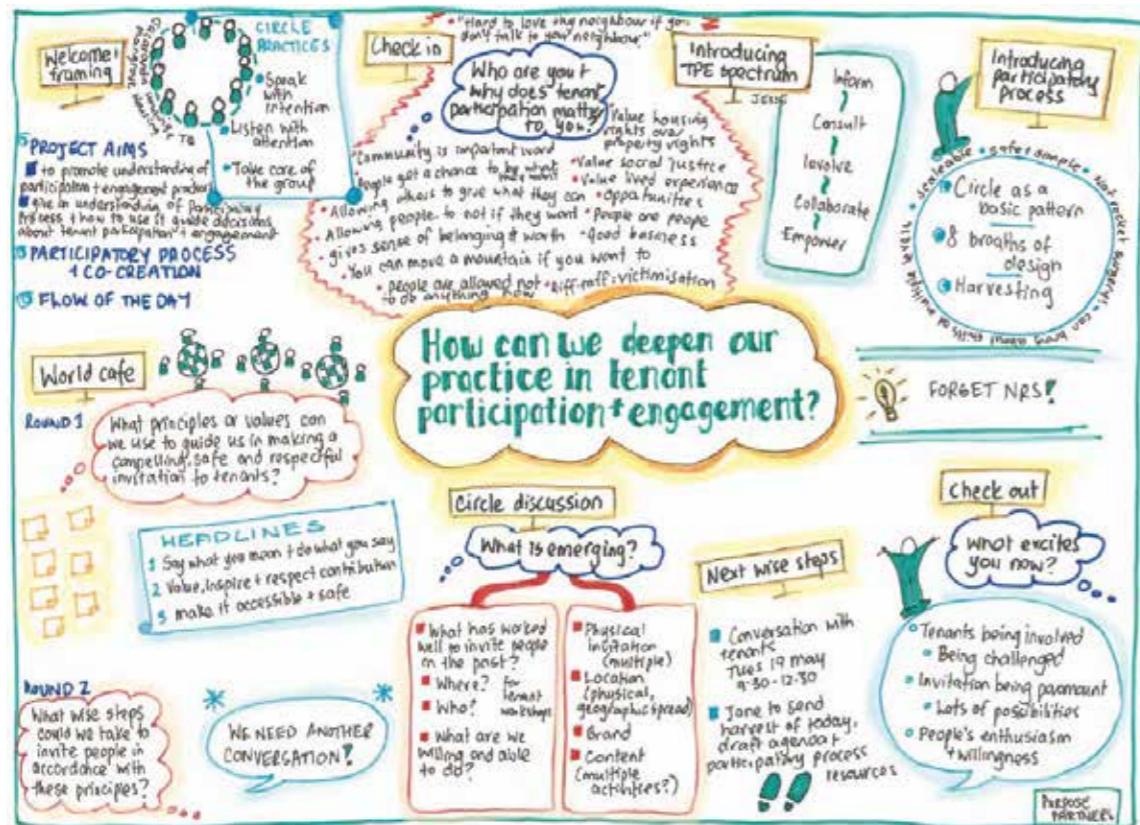 Welcome +
framing
CIRCLE
PRACTICES
Speak
with
intention
Listen with
attention
Take care of
the group
PROJECT AIMS
to promote understanding of
participation + engagement practice
give an understanding of Participatory
Process + how to use it guide decisions
about tenant participation + engagement
PARTICIPATORY PROCESS
+ CO-CREATION
FLOW OF THE DAY
Check in
"Hard to love thy neighbour if you
don't talk to your neighbour"
Who are you +
why does tenant
participation matter
to you?
Community is important word
People get a chance to be what
they want
Allowing others to give what they can
Allowing people to not if they want
gives sense of belonging + worth
You can move a mountain if you want to
people are allowed not
to do anything now
Value housing
rights over
property rights
Value social justice
Value lived experience
Opportunities
People are people
Good business
Riff-raff: victimisation
Introducing
TPE spectrum
JESSE
Inform
Consult
Involve
Collaborate
Empower
Introducing
participatory
process
scaleable • safe + simple • Not rocket surgery! • can hang about bits at multiple levels
Circle as a
basic pattern
8 breaths of
design
Harvesting
How can we deepen our
practice in tenant
participation + engagement?
FORGET NRS!
World cafe
ROUND 1
What principles or values can
we use to guide us in making a
compelling, safe and respectful
invitation to tenants?
HEADLINES
1 Say what you mean + do what you say
2 Value, inspire + respect contribution
3 make it accessible + safe
ROUND 2
What wise steps
could we take to
invite people in
accordance with
these principles?
WE NEED ANOTHER
CONVERSATION!
Circle discussion
What is emerging?
What has worked
well to invite people
in the past?
Where?
Who?
for
tenant
workshops
What are we
willing and able
to do?
Physical
Invitation
(multiple)
Location
(physical,
geographic spread)
Brand
Content
(multiple
activities?)
Next wise steps
Conversation with
tenants
Tues 19 may
9.30 - 12.30
Jane to send
harvest of today,
draft agenda +
participatory process
resources
Check out
what excites
you now?
Tenants being involved
Being challenged
Invitation being paramount
Lots of possibilities
People's enthusiasm
+ willingness
PURPOSE
PARTNERS